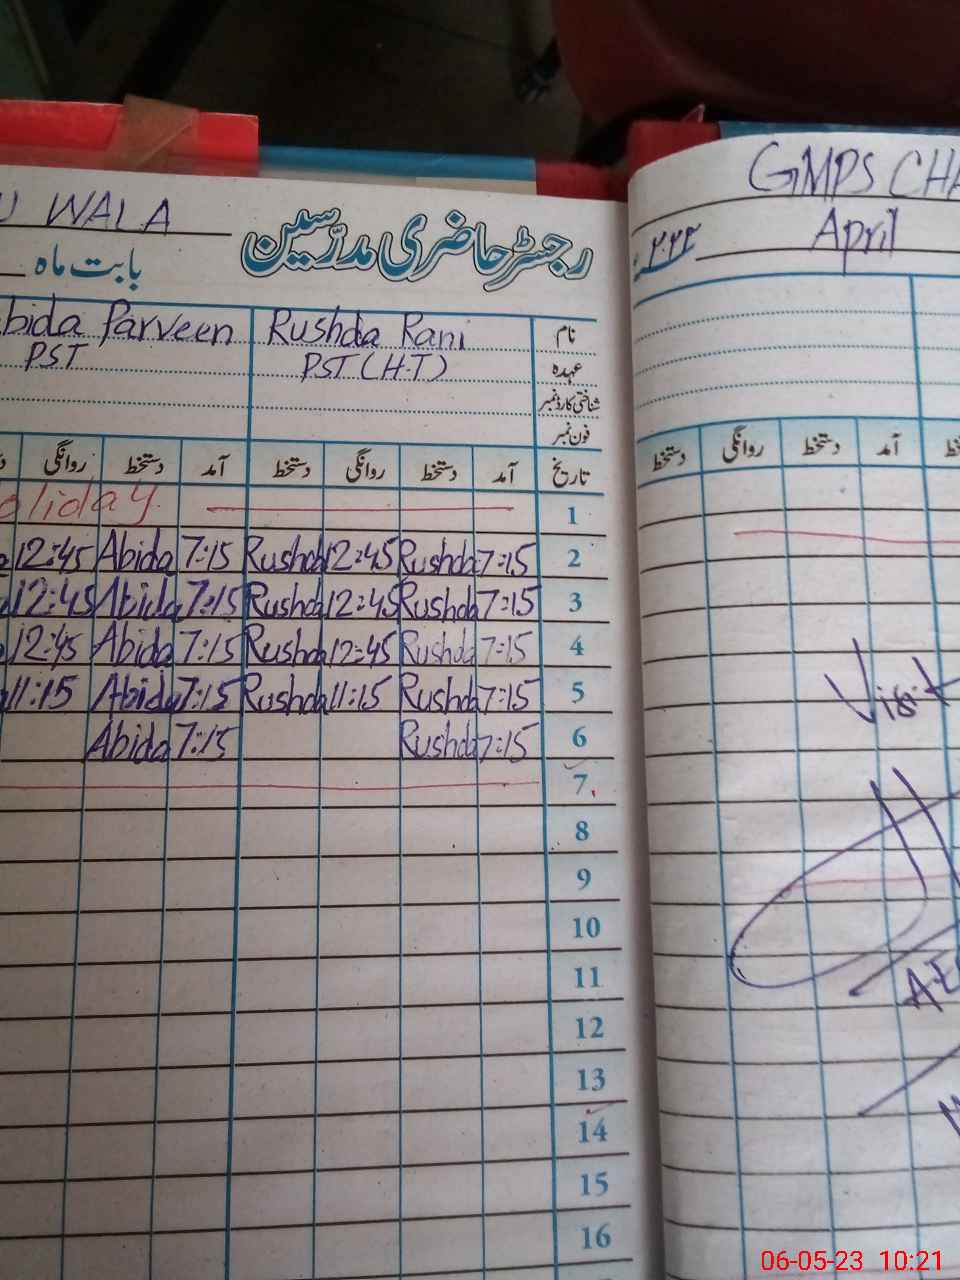 WALA
رجسٹر حاضری مدرّسین
بابت ماہ
Parveen Rushda Rani نام
PST PST (H.T) عہدہ
شناختی کارڈ نمبر
فون نمبر
روانگی دستخط آمد دستخط روانگی دستخط آمد تاریخ
Holiday 1
12:45 Abida 7:15 Rushda 12:45 Rushda 7:15 2
12:45 Abida 7:15 Rushda 12:45 Rushda 7:15 3
12:45 Abida 7:15 Rushda 12:45 Rushda 7:15 4
11:15 Abida 7:15 Rushda 11:15 Rushda 7:15 5
Abida 7:15 Rushda 7:15 6
7
8
9
10
11
12
13
14
15
16
GMPS CHA
April
دستخط روانگی دستخط آمد
Visit
06-05-23 10:21